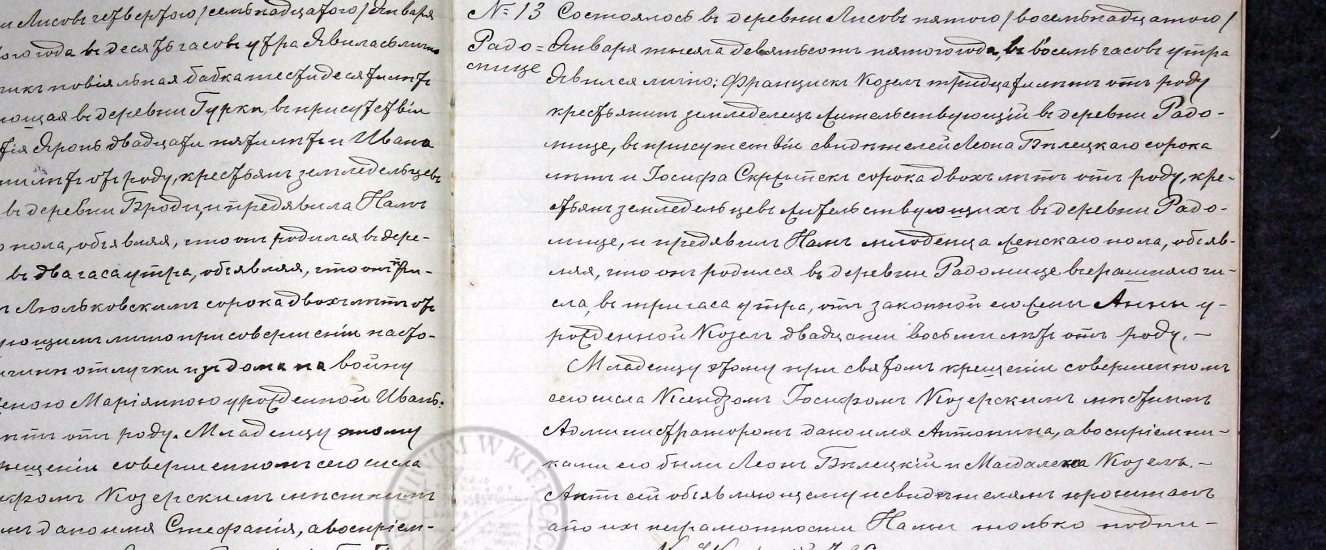 Лисовъ четвертого /семьнадцатого/ Января
года въ десять часовъ утра Явилась лично
повіяльная бабка шестидесяти лѣтъ
въ деревни Гурки, въ присутствіи
двадцати пяти лѣтъ и Ивана
лѣтъ отъ роду, крестьянъ земледѣльцевъ
въ деревни Броды, и предявила Намъ
пола, объявляя, что онъ родился въ дере-
въ два часа утра, объявляя, что онъ при-
Люльковскимъ сорока двохъ лѣтъ отъ
лично при совершеніи насто-
отлучки изъ дома на войну
Маріянною урожденной Иванъ-
лѣтъ отъ роду. Младенцу этому
крещеніи совершенномъ сего числа
Козерскимъ мѣстнымъ
дано имя Стефанія, а воспріем-
№ 13 Состоялось въ деревни Лисовъ пятого /восемьнадцатого/
Радо= Января тысяча девятьсотъ пятого года, въ восемь часовъ утра
мице Явился лично: Францискъ Козелъ тридцати лѣтъ отъ роду
крестьянинъ земледелецъ жительствующій въ деревни Радо-
мице, въ присутствіи свидѣтелей Леона Бѣлецкаго сорока
лѣтъ и Іосифа сорока двохъ лѣтъ отъ роду, кре-
стьянъ земледельцевъ жительствующихъ въ деревни Радо-
мице, и предявилъ Намъ младенца женскаго пола, объяв-
ляя, что онъ родился въ деревни Радомице вчерашняго чи-
сла, въ три часа утра, отъ законной его жены Анны у-
рожденной Козелъ двадцати восьми лѣтъ отъ роду. —
Младенцу этому при святомъ крещеніи совершенномъ
сего числа Ксендзомъ Іосифомъ Козерскимъ мѣстнымъ
Администраторомъ дано имя Антонина, а воспріемни-
ками его были Леонъ Бѣлецкій и Магдалена Козелъ. —
Актъ сей объявляющему и свидѣтелямъ прочитанъ
а по ихъ неграмотности Нами только подпи-